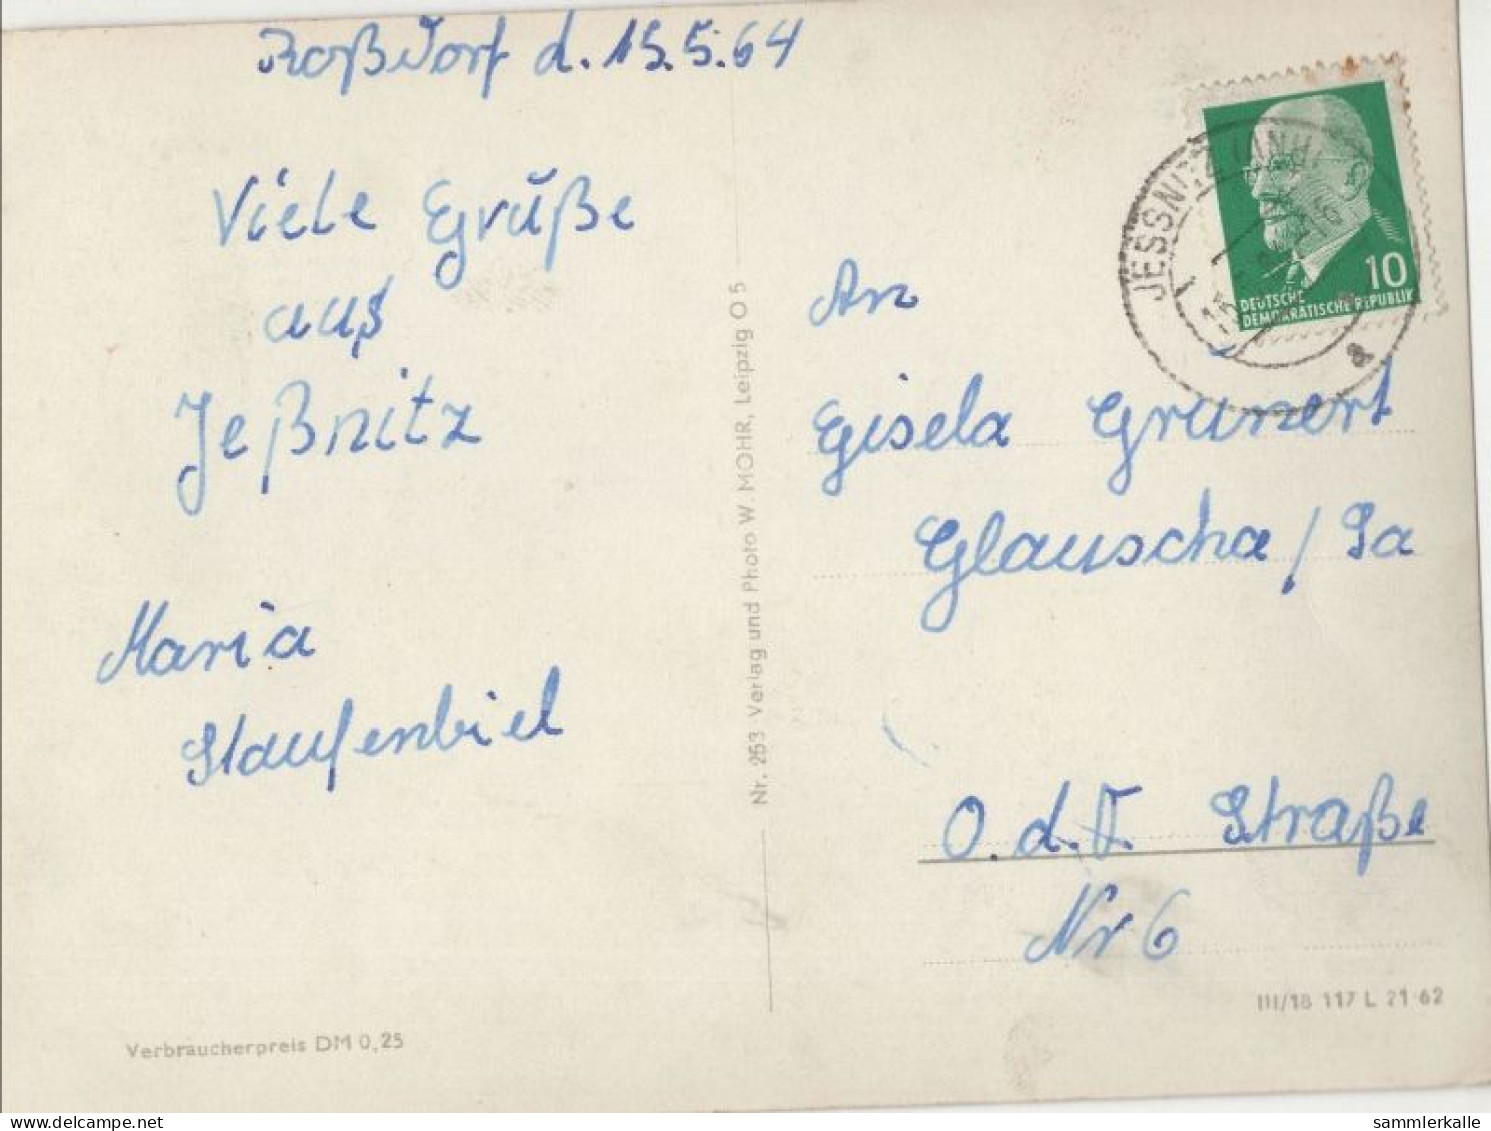 Roßdorf d. 15.5.64
Viele Grüße
aus
Jeßnitz
Maria
Staufenbiel
Verbraucherpreis DM 0,25
Nr. 253 Verlag und Photo W. MOHR, Leipzig O 5
JESSNITZ (ANH
a
10
DEUTSCHE
DEMOKRATISCHE REPUBLIK
An
Gisela Grunert
Glauscha / Sa
O.d.F. Straße
Nr 6
III/18 117 L 21 62
sammlerkalle